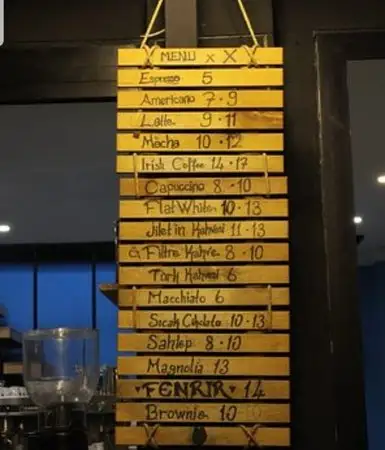 MENU x X
Espresso 5
Americano 7 - 9
Latte 9 - 11
Mocha 10 - 12
Irish Coffee 14 - 17
Capuccino 8 - 10
Flat White 10 - 13
Jilet'in Kahvesi 11 - 13
Filtre Kahve 8 - 10
Türk Kahvesi 6
Macchiato 6
Sıcak Çikolata 10 - 13
Sahlep 8 - 10
Magnolia 13
♥FENRIR♥ 14
Brownie 10